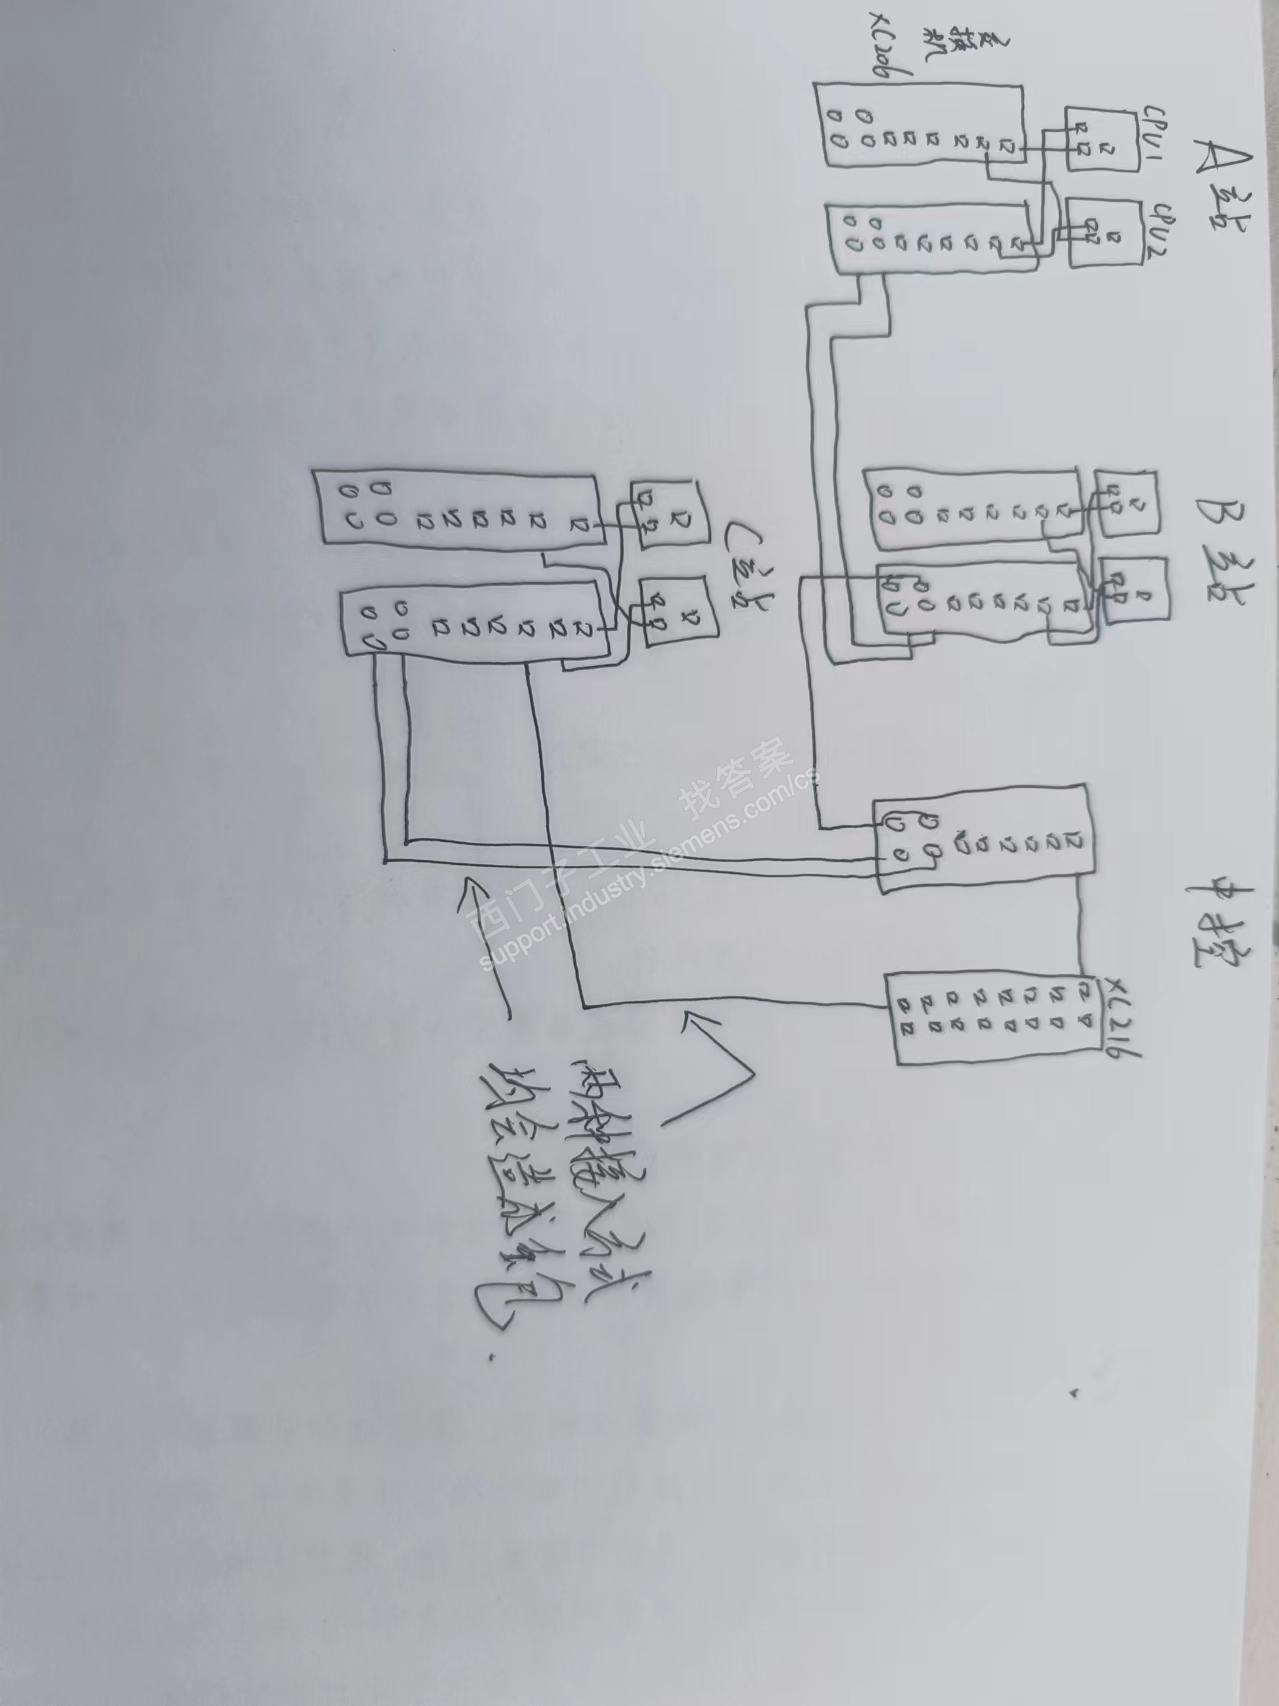 A站
B站
中控
CPU1
CPU2
交换机
XC206
C站
XC216
两种接入方式
均会造成
西门子工业 找答案
support.industry.siemens.com/cs